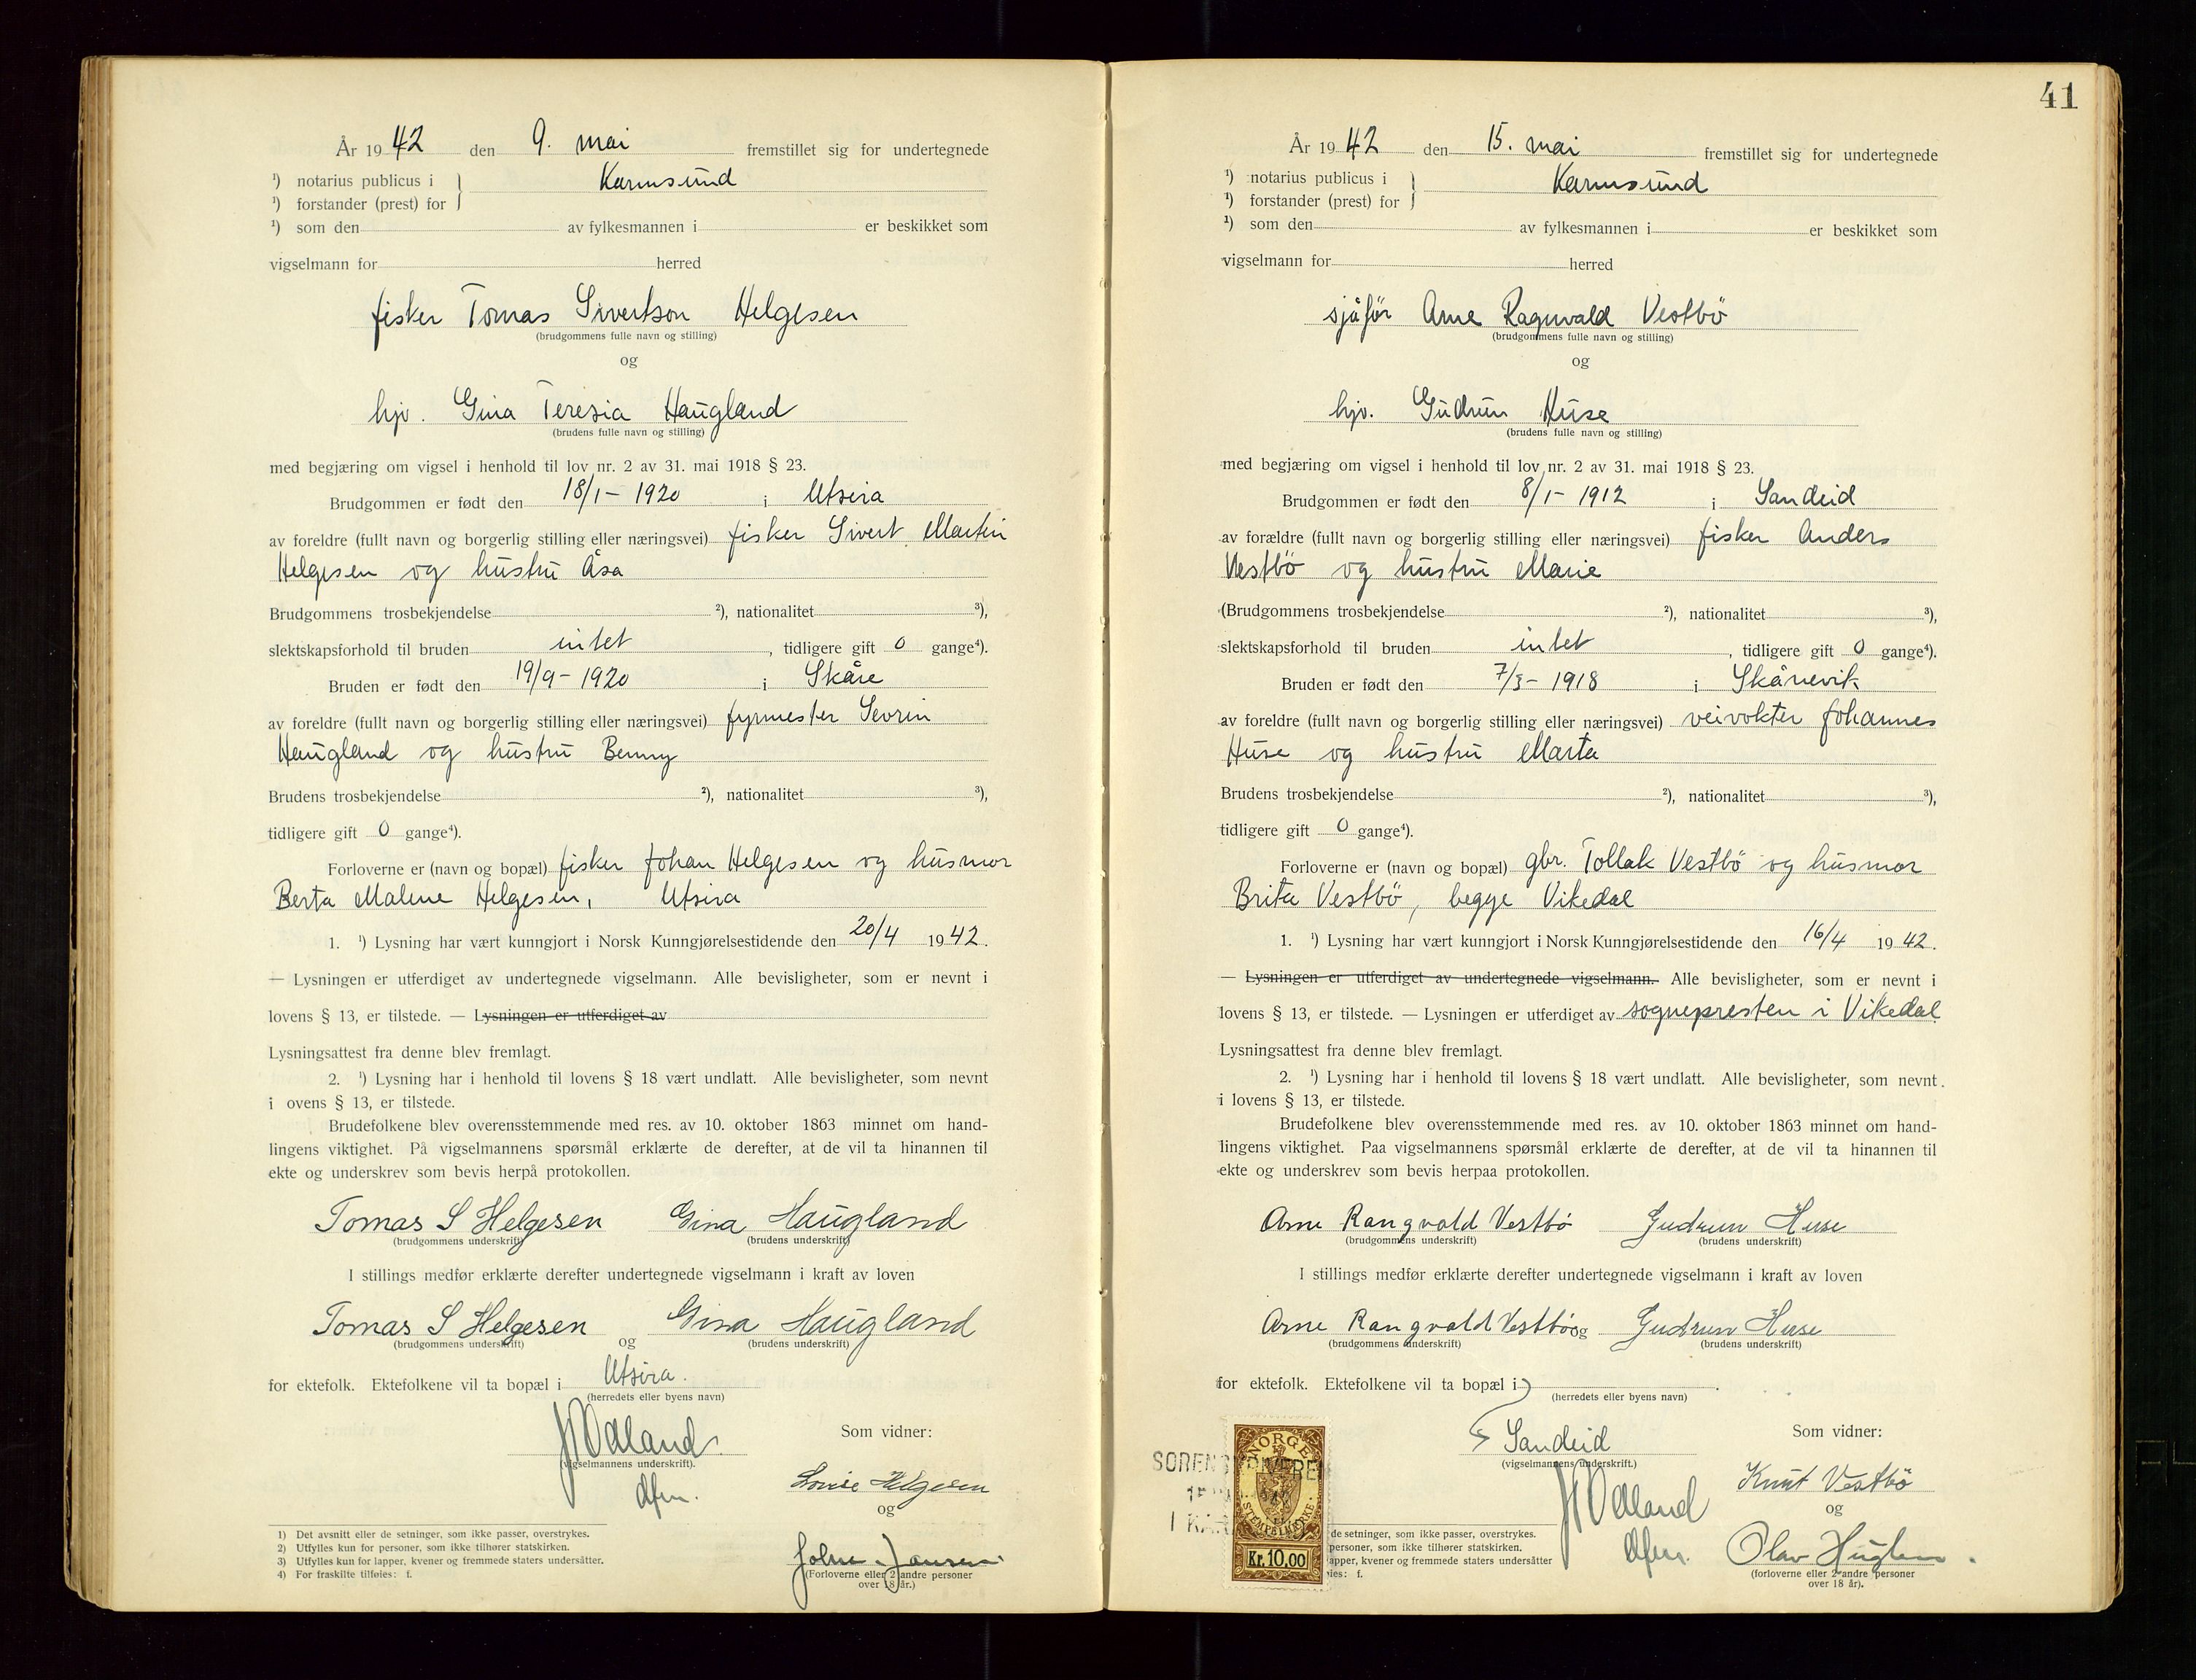 År 1942 den 9. mai fremstillet sig for undertegnede
¹) notarius publicus i } Karmsund
¹) forstander (prest) for
¹) som den av fylkesmannen i er beskikket som
vigselmann for herred
fisker Tomas Sivertson Helgesen
(brudgommens fulle navn og stilling)
og
hjv. Gina Teresia Haugland
(brudens fulle navn og stilling)
med begjæring om vigsel i henhold til lov nr. 2 av 31. mai 1918 § 23.
Brudgommen er født den 18/1 - 1920 i Utsira
av foreldre (fullt navn og borgerlig stilling eller næringsvei) fisker Sivert Martin
Helgesen og hustru Åsa
Brudgommens trosbekjendelse ²), nationalitet ³),
slektskapsforhold til bruden intet, tidligere gift 0 gange⁴).
Bruden er født den 19/9 - 1920 i Skåre
av foreldre (fullt navn og borgerlig stilling eller næringsvei) fyrmester Sevrin
Haugland og hustru Benny
Brudens trosbekjendelse ²), nationalitet ³),
tidligere gift 0 gange⁴).
Forloverne er (navn og bopæl) fisker Johan Helgesen og husmor
Berta Malene Helgesen, Utsira
1. ¹) Lysning har vært kunngjort i Norsk Kunngjørelsestidende den 20/4 1942.
— Lysningen er utferdiget av undertegnede vigselmann. Alle bevisligheter, som er nevnt i
lovens § 13, er tilstede. — Lysningen er utferdiget av
Lysningsattest fra denne blev fremlagt.
2. ¹) Lysning har i henhold til lovens § 18 vært undlatt. Alle bevisligheter, som nevnt
i ovens § 13, er tilstede.
Brudefolkene blev overensstemmende med res. av 10. oktober 1863 minnet om hand-
lingens viktighet. På vigselmannens spørsmål erklærte de derefter, at de vil ta hinannen til
ekte og underskrev som bevis herpå protokollen.
Tomas S Helgesen Gina Haugland
(brudgommens underskrift) (brudens underskrift)
I stillings medfør erklærte derefter undertegnede vigselmann i kraft av loven
Tomas S Helgesen og Gina Haugland
(brudgommens underskrift) (brudens underskrift)
for ektefolk. Ektefolkene vil ta bopæl i Utsira.
(herredets eller byens navn)
Ødland Som vidner:
(vigselmannens underskrift).
dfm. Lovise Helgesen
og
John Jansen
(Forloverne eller 2 andre personer
over 18 år.)
1) Det avsnitt eller de setninger, som ikke passer, overstrykes.
2) Utfylles kun for personer, som ikke tilhører statskirken.
3) Utfylles kun for lapper, kvener og fremmede staters undersåtter.
4) For fraskilte tilføies: f.
41
År 1942 den 15. mai fremstillet sig for undertegnede
¹) notarius publicus i } Karmsund
¹) forstander (prest) for
¹) som den av fylkesmannen i er beskikket som
vigselmann for herred
sjåför Arne Ragnvald Vestbö
(brudgommens fulle navn og stilling)
og
hjv. Gudrun Huse
(brudens fulle navn og stilling)
med begjæring om vigsel i henhold til lov nr. 2 av 31. mai 1918 § 23.
Brudgommen er født den 8/1 - 1912 i Sandeid
av forældre (fullt navn og borgerlig stilling eller næringsvei) fisker Anders
Vestbö og hustru Marie
(Brudgommens trosbekjendelse ²), nationalitet ³),
slektskapsforhold til bruden intet, tidligere gift 0 gange⁴).
Bruden er født den 7/3 - 1918 i Skånevik
av foreldre (fullt navn og borgerlig stilling eller næringsvei) veivokter Johannes
Huse og hustru Marta
Brudens trosbekjendelse ²), nationalitet ³),
tidligere gift 0 gange⁴).
Forloverne er (navn og bopæl) gbr. Tollak Vestbö og husmor
Brita Vestbö, begge Vikedal
1. ¹) Lysning har vært kunngjort i Norsk Kunngjørelsestidende den 16/4 1942.
— Lysningen er utferdiget av undertegnede vigselmann. Alle bevisligheter, som er nevnt i
lovens § 13, er tilstede. — Lysningen er utferdiget av sognepresten i Vikedal
Lysningsattest fra denne blev fremlagt.
2. ¹) Lysning har i henhold til lovens § 18 vært undlatt. Alle bevisligheter, som nevnt
i lovens § 13, er tilstede.
Brudefolkene blev overensstemmende med res. av 10. oktober 1863 minnet om hand-
lingens viktighet. Paa vigselmannens spørsmål erklærte de derefter, at de vil ta hinannen til
ekte og underskrev som bevis herpaa protokollen.
Arne Rangvald Vestbö Gudrun Huse
(brudgommens underskrift) (brudens underskrift)
I stillings medfør erklærte derefter undertegnede vigselmann i kraft av loven
Arne Rangvald Vestbö og Gudrun Huse
(brudgommens underskrift) (brudens underskrift)
for ektefolk. Ektefolkene vil ta bopæl i
(herredets eller byens navn)
Sandeid Som vidner:
(vigselmannens underskrift.)
Ødland Knut Vestbö
og
dfm. Olav
(forloverne eller 2 andre personer
over 18 år).
NORGE
STEMPELMERKE
Kr. 10,00
de setninger, som ikke passer, overstrykes.
personer, som ikke tilhører statskirken.
apper, kvener og fremmede staters undersåtter
ies: f.